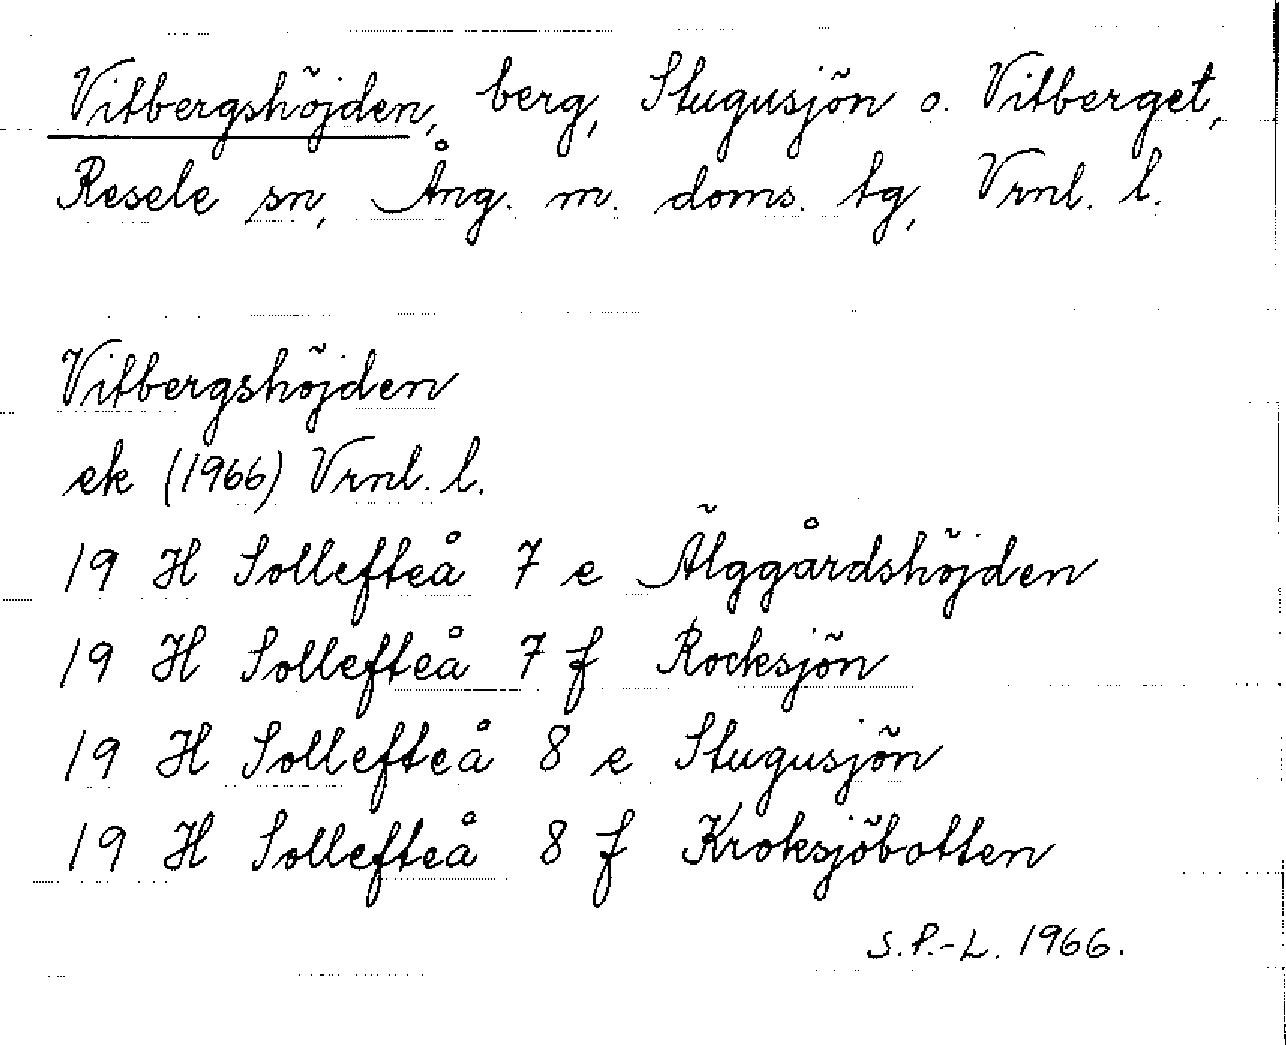 Vitbergshöjden, berg, Stugusjön o. Vitberget,
Resele sn, Ång. m. doms. tg, Vrnl. l.
Vitbergshöjden
ek (1966) Vrnl. l.
19 H Sollefteå 7 e Älggårdshöjden
19 H Sollefteå 7 f Rocksjön
19 H Sollefteå 8 e Stugusjön
19 H Sollefteå 8 f Kroksjöbotten
S.P.-L. 1966.